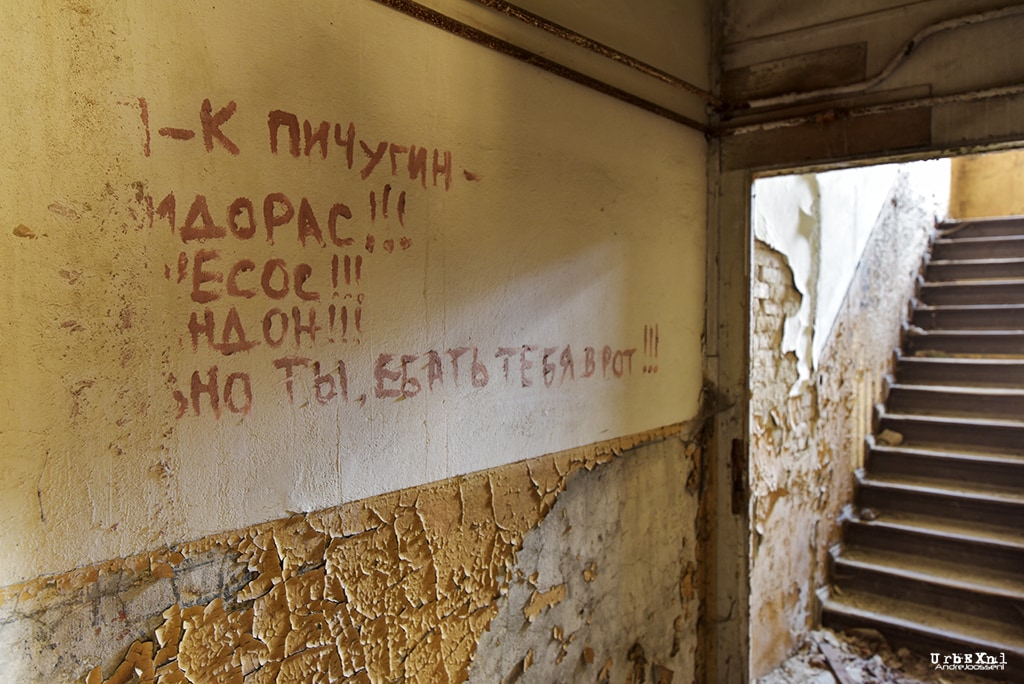 -К ПИЧУГИН -
ИДОРАС!!!
ЕСОС!!!
НДОН!!!
НО ТЫ, ЕБАТЬ ТЕБЯ В РОТ!!!
UrbEXnl
AndreJoosse.nl